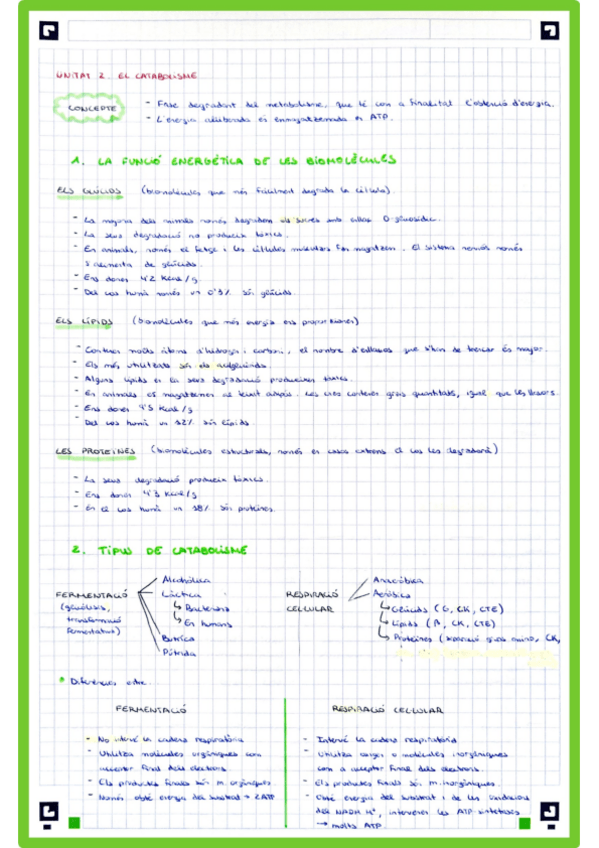 UNITAT 2. EL CATABOLISME
CONCEPTE
- Fase degradant del metabolisme, que té com a finalitat l'obtenció d'energia.
- L'energia alliberada és enmagatzemada en ATP.
1. LA FUNCIÓ ENERGÈTICA DE LES BIOMOLÈCULES
ELS GLÚCIDS (biomolècules que més fàcilment degrada la cèl·lula).
- La majoria dels animals només degraden els sucres amb enllaç O-glucosídic.
- La seva degradació no produeix tòxics.
- En animals, només el fetge i les cèl·lules musculars fan magatzem. El sistema nerviós només
s'alimenta de glúcids.
- Ens dones 4'2 Kcal/g.
- Del cos humà només un 0'5% són glúcids.
ELS LÍPIDS (biomolècules que més energia ens proporcionen)
- Contenen molts àtoms d'hidrogen i carboni, el nombre d'enllaços que s'han de trencar és major.
- Els més utilitzats són els acilglicèrids.
- Alguns lípids en la seva degradació produeixen tòxics.
- En animals es magatzemen al teixit adipós. Les cries contenen grans quantitats, igual que les llavors.
- Ens dones Kcal/g
- Del cos humà un 12% són lípids.
LES PROTEÏNES (biomolècules estructurals, només en casos extrems el cos les degradarà)
- La seva degradació produeix tòxics.
- Ens dones 4'3 Kcal/g
- En el cos humà un 18% són proteïnes.
2. TIPUS DE CATABOLISME
FERMENTACIÓ
(glucòlisis,
transformació
fermentativa)
Alcohòlica
Làctica
↳ Bacteriana
↳ En humans
Butírica
Pútrida
RESPIRACIÓ
CEL·LULAR
Anaeròbica
Aeròbica
↳ Glúcids (G, CK, CTE)
↳ Lípids (β, CK, CTE)
↳ Proteïnes (separació grups amino, CK,
• Diferències entre
FERMENTACIÓ
- No intervé la cadena respiratòria
- Utilitza molècules orgàniques com
acceptor final dels electrons.
- Els productes finals són m. orgàniques
- Només obté energia del substrat → 2ATP
RESPIRACIÓ CEL·LULAR
- Intervé la cadena respiratòria
- Utilitza oxigen o molècules inorgàniques
com a acceptor final dels electrons.
- Els productes finals són m. inorgàniques.
- Obté energia del substrat i de les
del NADH H⁺, intervenen les ATP-sintetases
→ molts ATP.